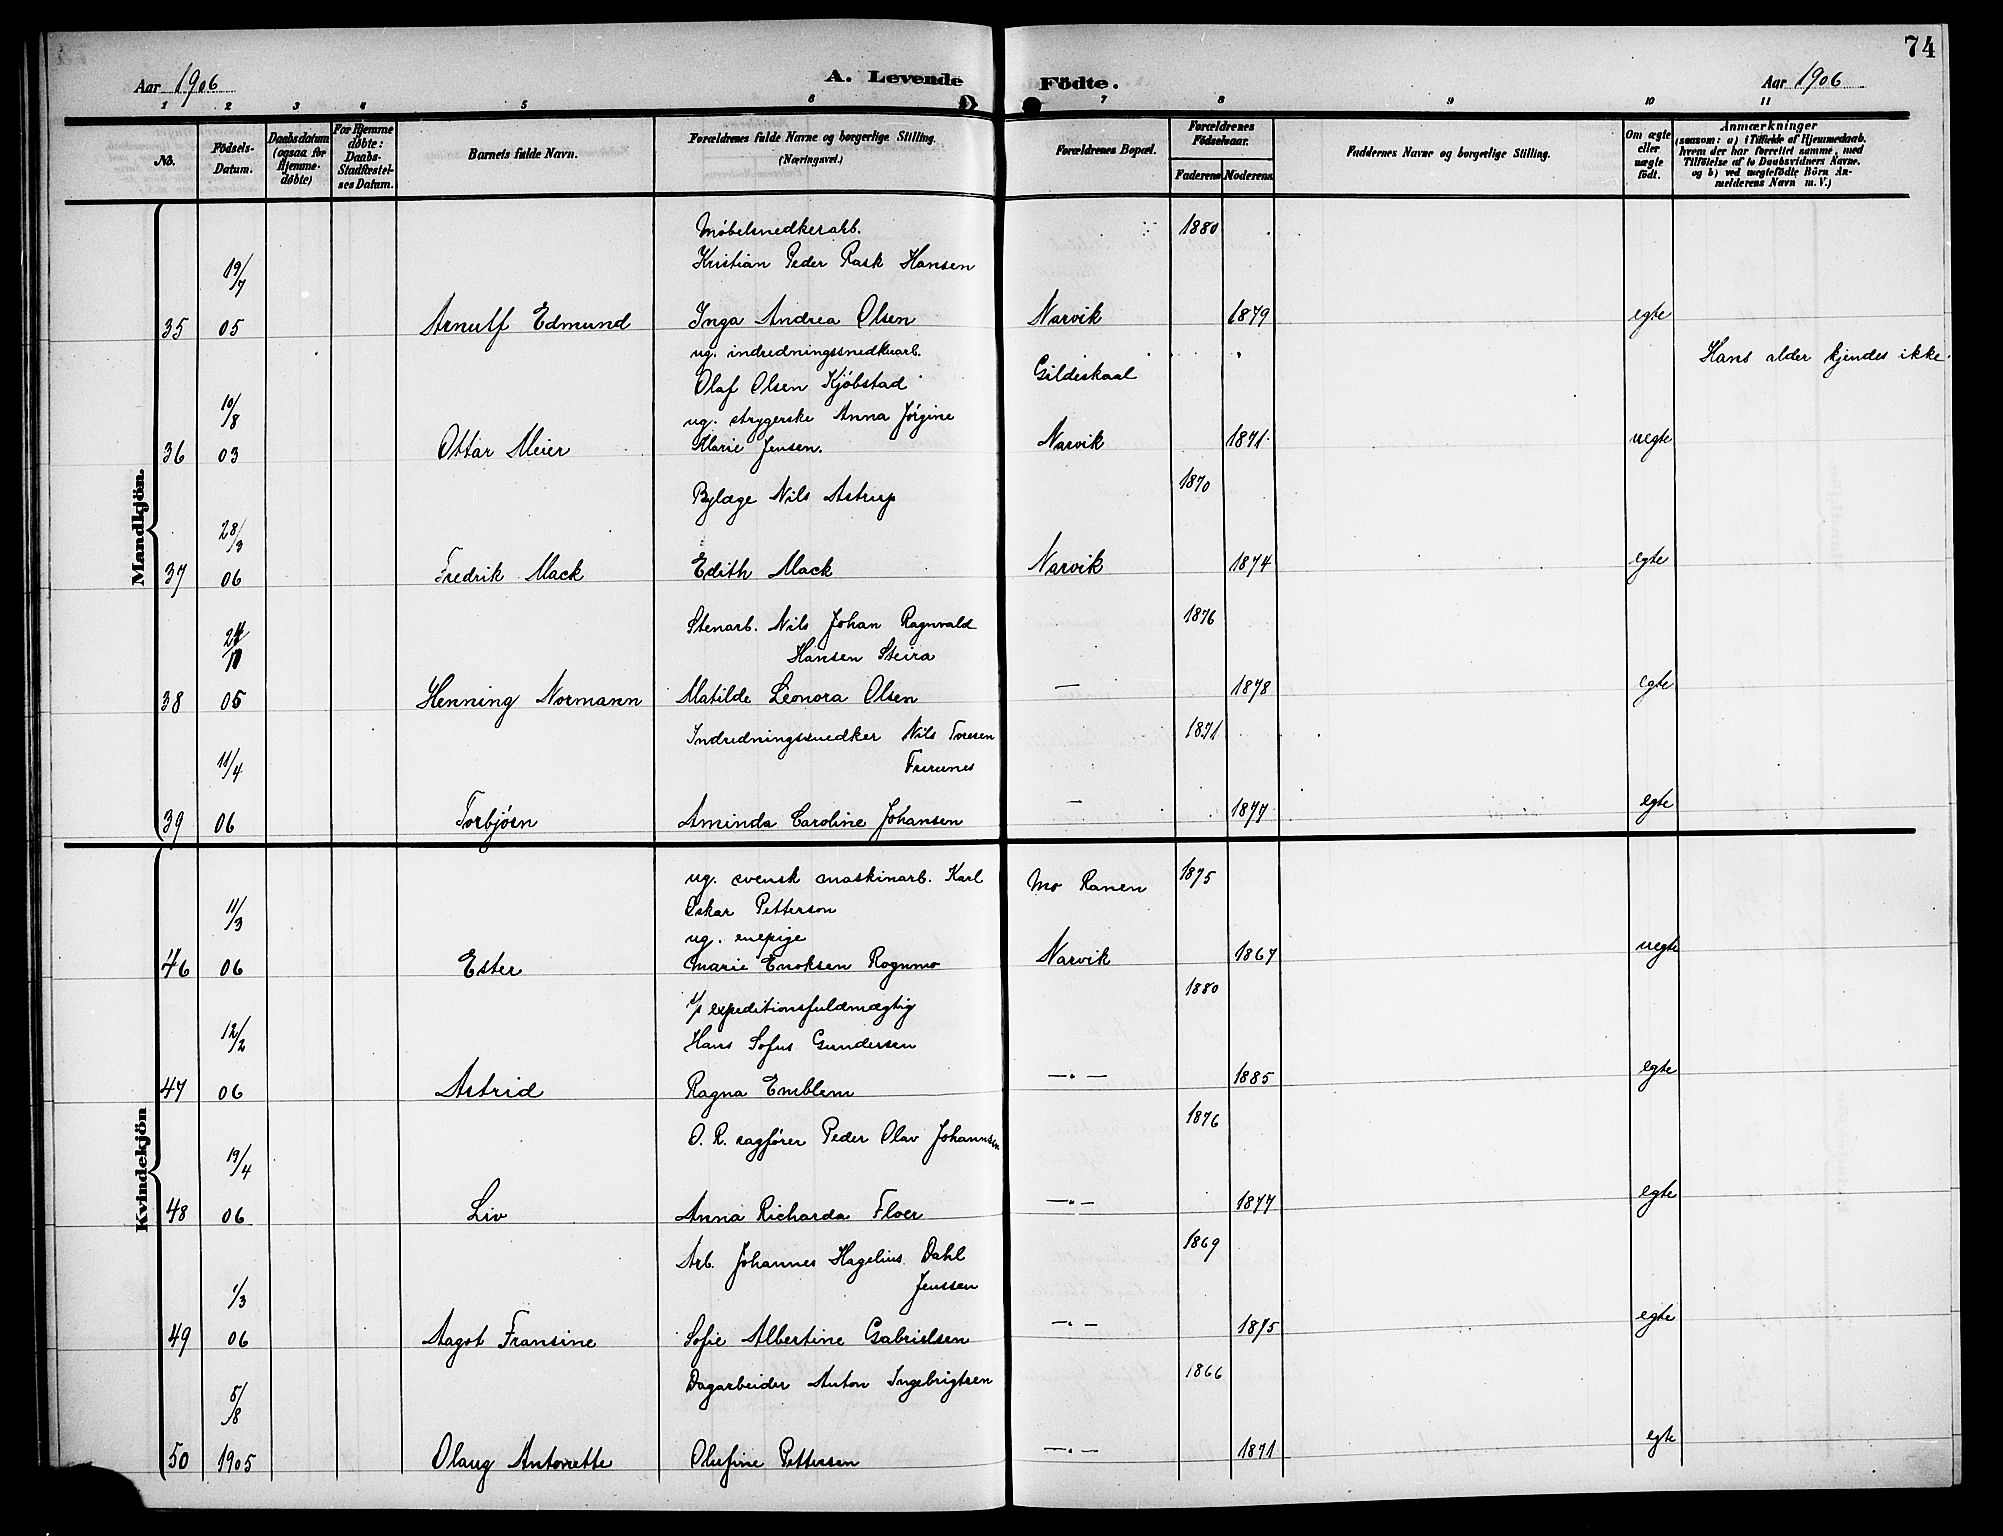 74
Aar 1906
A. Levende Födte.
Aar 1906
1 2 3 4 5 6 7 8 9 10 11
No.
Födsels-Datum.
Daabsdatum (ogsaa for Hjemme-døbte)
For Hjemme døbte: Daabs-Stadfæstel-ses Datum.
Barnets fulde Navn.
Forældrenes fulde Navne og borgerlige Stilling. (Næringsvei.)
Forældrenes Bopæl.
Forældrenes Födselsaar.
Faderens Moderens
Faddernes Navne og borgerlige Stilling.
Om ægte eller uægte födt.
Anmærkninger
(saasom: a) i Tilfælde af Hjemmedaab, hvem der har forrettet samme, med Tilföielse af to Daabsvidners Navne. og b) ved uægtefödte Börn An-melderens Navn m. V.)
Mandkjön.
Møbelsnedkerarb. 1880
19/7 Kristian Peder Rask Hansen
35 05 Arnulf Edmund Inga Andrea Olsen Narvik 1879 egte
ug. indredningssnedkerarb. Hans alder kjendes ikke.
Olaf Olsen Kjøbstad Gildeskaal
10/8 ug. strygerske Anna Jørgine
36 03 Ottar Meier Marie Jensen. Narvik 1871 uegte
Bylæge Nils Astrup 1870
28/3
37 06 Fredrik Mack Edith Mack Narvik 1874 egte
Stenarb. Nils Johan Ragnvald 1876
Hansen Steira
38 05 Henning Normann Matilde Leonora Olsen — 1878 egte
Indredningssnedker Nils Toresen 1871
11/4 Furunes
39 06 Torbjørn Aminda Caroline Johansen — 1877 egte
Kvindekjön
ug. svensk maskinarb. Karl Mo Ranen 1875
11/3 Oskar Petterson
ug. enepige
46 06 Ester Marie Enoksen Rognmo Narvik 1867 uegte
expeditionsfuldmægtig 1880
12/2 Hans Sofus Gundersen
47 06 Astrid Ragna Emblem —"— 1885 egte
O. R. sagfører Peder Olav Johannsen 1876
19/4
48 06 Liv Anna Richarda Floer —"— 1877 egte
Arb. Johannes Hagelius Dahl 1869
1/3 Jenssen
49 06 Aagot Fransine Sofie Albertine Gabrielsen —"— 1875 egte
Dagarbeider Anton Ingebrigtsen 1866
5/8
50 1905 Olaug Antonette Olufine Pettersen —"— 1871 egte